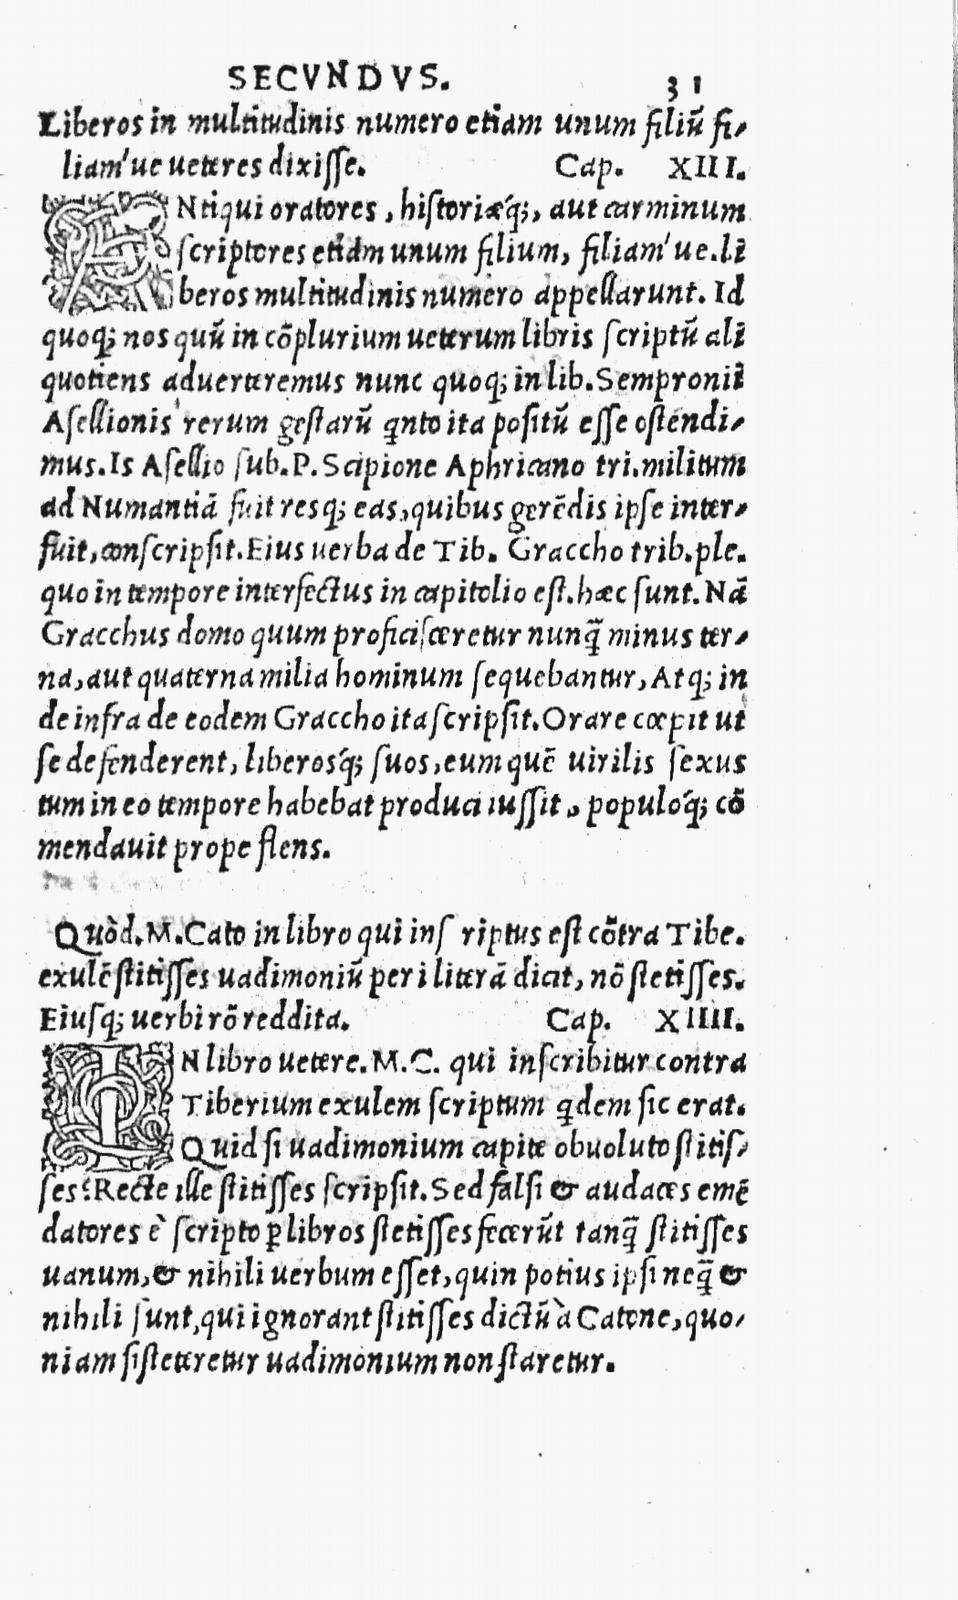 SECVNDVS. 31
Liberos in multitudinis numero etiam unum filiũ fi-
liam'ue ueteres dixisse. Cap. XIII.
ANtiqui oratores, historiæq́;, aut carminum
scriptores etiam unum filium, filiam'ue. li
beros multitudinis numero appellarunt. Id
quoq; nos quũ in cõplurium ueterum libris scriptũ ali
quotiens aduerteremus nunc quoq; in lib. Sempronii
Asellionis rerum gestarũ qnto ita positũ esse ostendi-
mus. Is Asellio sub. P. Scipione Aphricano tri. militum
ad Numantiã fuit resq; eas, quibus gerẽdis ipse inter-
fuit, conscripsit. Eius uerba de Tib. Graccho trib. ple.
quo in tempore interfectus in capitolio est. hæc sunt. Nã
Gracchus domo quum proficisceretur nunq̃ minus ter-
na, aut quaterna milia hominum sequebantur, Atq; in
de infra de eodem Graccho ita scripsit. Orare cœpit ut
se defenderent, liberosq́; suos, eum quẽ uirilis sexus
tum in eo tempore habebat produci iussit, populoq́; cõ
mendauit prope flens.
Quòd. M. Cato in libro qui ins riptus est cõtra Tibe.
exulẽ stitisses uadimoniũ per i literã dicat, nõ stetisses.
Eiusq; uerbi rõ reddita. Cap. XIIII.
IN libro uetere. M. C. qui inscribitur contra
Tiberium exulem scriptum qdem sic erat.
Quid si uadimonium capite obuoluto stitis-
ses? Recte ille stitisses scripsit. Sed falsi & audaces emẽ
datores è scripto ꝑ libros stetisses fecerũt tanq̃ stitisses
uanum, & nihili uerbum esset, quin potius ipsi neq̃ &
nihili sunt, qui ignorant stitisses dictũ à Catone, quo-
niam sisteteretur uadimonium non staretur.